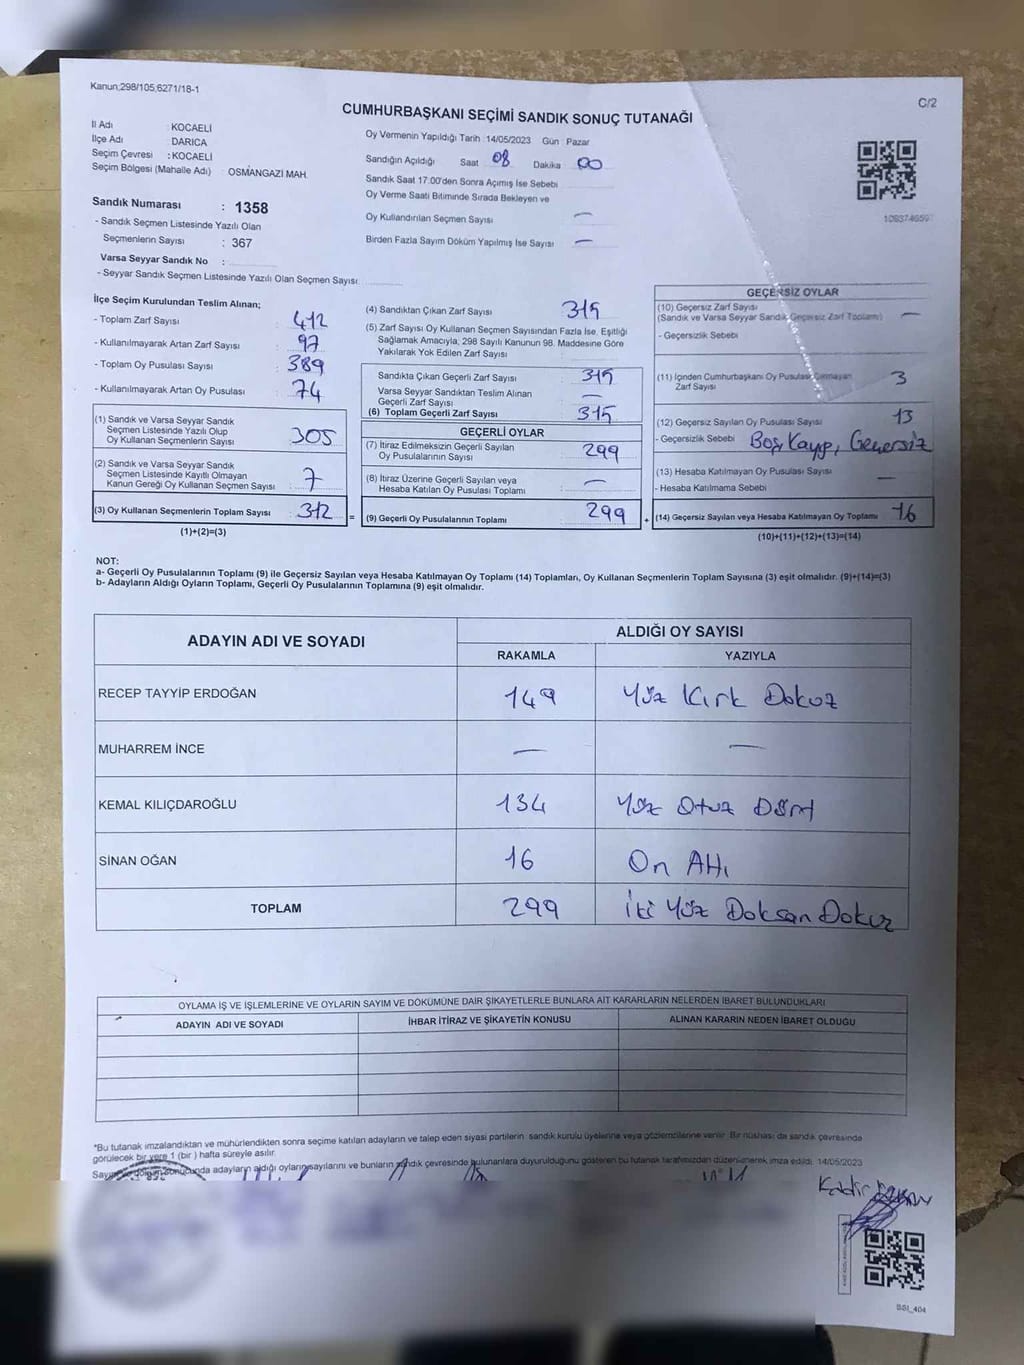 Kanun;298/105,6271/18-1
C/2
CUMHURBAŞKANI SEÇİMİ SANDIK SONUÇ TUTANAĞI
İl Adı : KOCAELİ
İlçe Adı : DARICA
Seçim Çevresi : KOCAELİ
Seçim Bölgesi (Mahalle Adı) : OSMANGAZİ MAH.
Sandık Numarası : 1358
- Sandık Seçmen Listesinde Yazılı Olan
Seçmenlerin Sayısı : 367
Varsa Seyyar Sandık No :
- Seyyar Sandık Seçmen Listesinde Yazılı Olan Seçmen Sayısı
Oy Vermenin Yapıldığı Tarih :14/05/2023 Gün : Pazar
Sandığın Açıldığı Saat 08 Dakika 00
Sandık Saat 17:00'den Sonra Açımış İse Sebebi
Oy Verme Saati Bitiminde Sırada Bekleyen ve
Oy Kullandırılan Seçmen Sayısı —
Birden Fazla Sayım Döküm Yapılmış İse Sayısı —
İlçe Seçim Kurulundan Teslim Alınan;
- Toplam Zarf Sayısı : 412
- Kullanılmayarak Artan Zarf Sayısı : 97
- Toplam Oy Pusulası Sayısı : 389
- Kullanılmayarak Artan Oy Pusulası : 74
(1) Sandık ve Varsa Seyyar Sandık
Seçmen Listesinde Yazılı Olup
Oy Kullanan Seçmenlerin Sayısı : 305
(2) Sandık ve Varsa Seyyar Sandık
Seçmen Listesinde Kayıtlı Olmayan
Kanun Gereği Oy Kullanan Seçmen Sayısı : 7
(3) Oy Kullanan Seçmenlerin Toplam Sayısı : 312
(1)+(2)=(3)
(4) Sandıktan Çıkan Zarf Sayısı : 315
(5) Zarf Sayısı Oy Kullanan Seçmen Sayısından Fazla İse, Eşitliği
Sağlamak Amacıyla, 298 Sayılı Kanunun 98. Maddesine Göre
Yakılarak Yok Edilen Zarf Sayısı :
Sandıkta Çıkan Geçerli Zarf Sayısı : 315
Varsa Seyyar Sandıktan Teslim Alınan
Geçerli Zarf Sayısı : —
(6) Toplam Geçerli Zarf Sayısı : 315
GEÇERLİ OYLAR
(7) İtiraz Edilmeksizin Geçerli Sayılan
Oy Pusulalarının Sayısı : 299
(8) İtiraz Üzerine Geçerli Sayılan veya
Hesaba Katılan Oy Pusulası Toplamı : —
= (9) Geçerli Oy Pusulalarının Toplamı : 299 +
GEÇERSİZ OYLAR
(10) Geçersiz Zarf Sayısı
(Sandık ve Varsa Seyyar Sandık Geçersiz Zarf Toplamı) —
- Geçersizlik Sebebi
(11) İçinden Cumhurbaşkanı Oy Pusulası Çıkmayan
Zarf Sayısı 3
(12) Geçersiz Sayılan Oy Pusulası Sayısı 13
- Geçersizlik Sebebi Boş, Kayıp, Geçersiz
(13) Hesaba Katılmayan Oy Pusulası Sayısı —
- Hesaba Katılmama Sebebi
(14) Geçersiz Sayılan veya Hesaba Katılmayan Oy Toplamı 16
(10)+(11)+(12)+(13)=(14)
NOT:
a- Geçerli Oy Pusulalarının Toplamı (9) ile Geçersiz Sayılan veya Hesaba Katılmayan Oy Toplamı (14) Toplamları, Oy Kullanan Seçmenlerin Toplam Sayısına (3) eşit olmalıdır. (9)+(14)=(3)
b- Adayların Aldığı Oyların Toplamı, Geçerli Oy Pusulalarının Toplamına (9) eşit olmalıdır.
ADAYIN ADI VE SOYADI
ALDIĞI OY SAYISI
RAKAMLA YAZIYLA
RECEP TAYYİP ERDOĞAN 149 Yüz Kırk Dokuz
MUHARREM İNCE — —
KEMAL KILIÇDAROĞLU 134 Yüz Otuz Dört
SİNAN OĞAN 16 On Altı
TOPLAM 299 İki Yüz Doksan Dokuz
OYLAMA İŞ VE İŞLEMLERİNE VE OYLARIN SAYIM VE DÖKÜMÜNE DAİR ŞİKAYETLERLE BUNLARA AİT KARARLARIN NELERDEN İBARET BULUNDUKLARI
ADAYIN ADI VE SOYADI İHBAR İTİRAZ VE ŞİKAYETİN KONUSU ALINAN KARARIN NEDEN İBARET OLDUĞU
*Bu tutanak imzalandıktan ve mühürlendikten sonra seçime katılan adayların ve talep eden siyasi partilerin sandık kurulu üyelerine veya gözlemcilerine verilir. Bir nüshası da sandık çevresinde
görülecek bir yere 1 (bir ) hafta süreyle asılır.
adayların aldığı oyların sayılarını ve bunların sandık çevresinde bulunanlara duyurulduğunu gösteren bu tutanak tarafımızdan düzenlenerek imza edildi. 14/05/2023
BSI_404